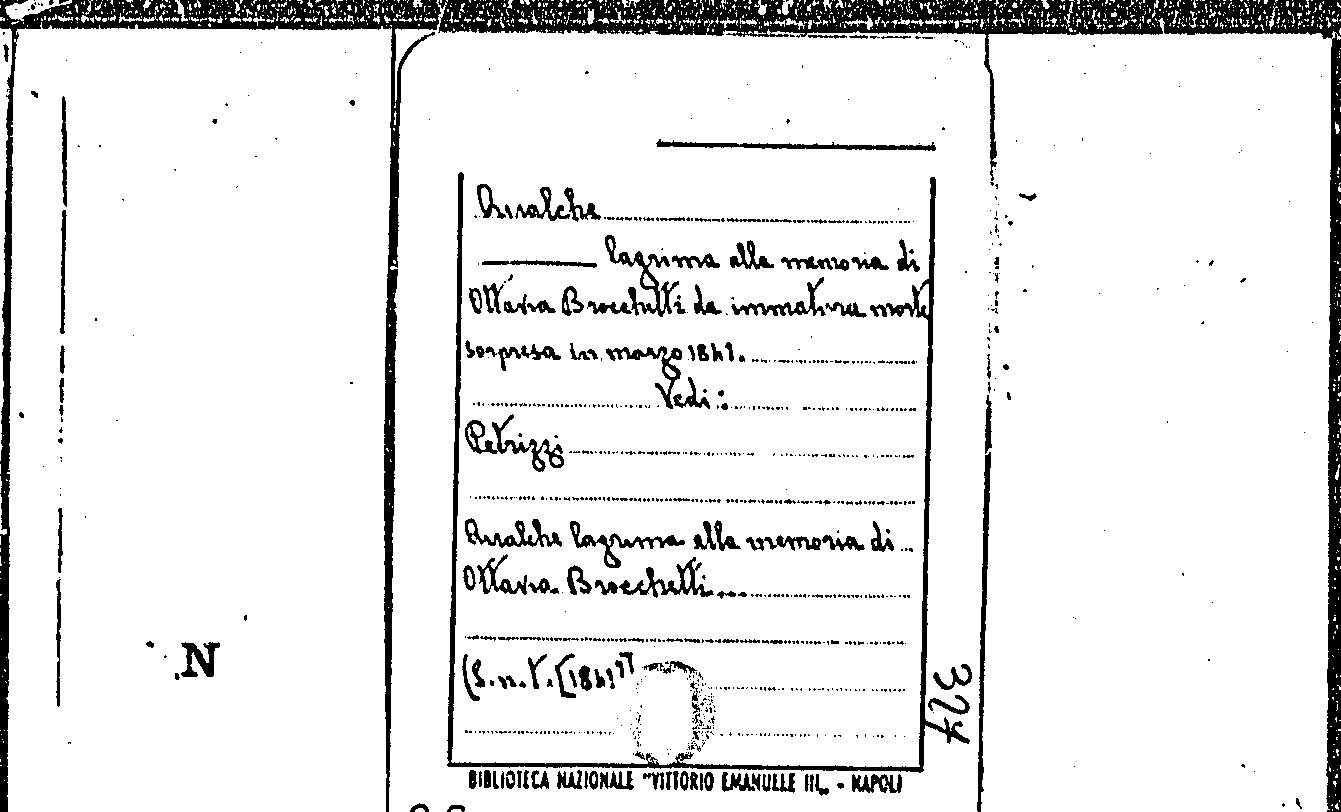 Qualche
lagrima alla memoria di
Ottavia Brocchetti da immatura morte
sorpresa in marzo 1841.
Vedi:
Petrizzi
Qualche lagrima alla memoria di ...
Ottavia Brocchetti....
(S.n.T. [1841?]
324
N
BIBLIOTECA NAZIONALE "VITTORIO EMANUELE III„ - NAPOLI